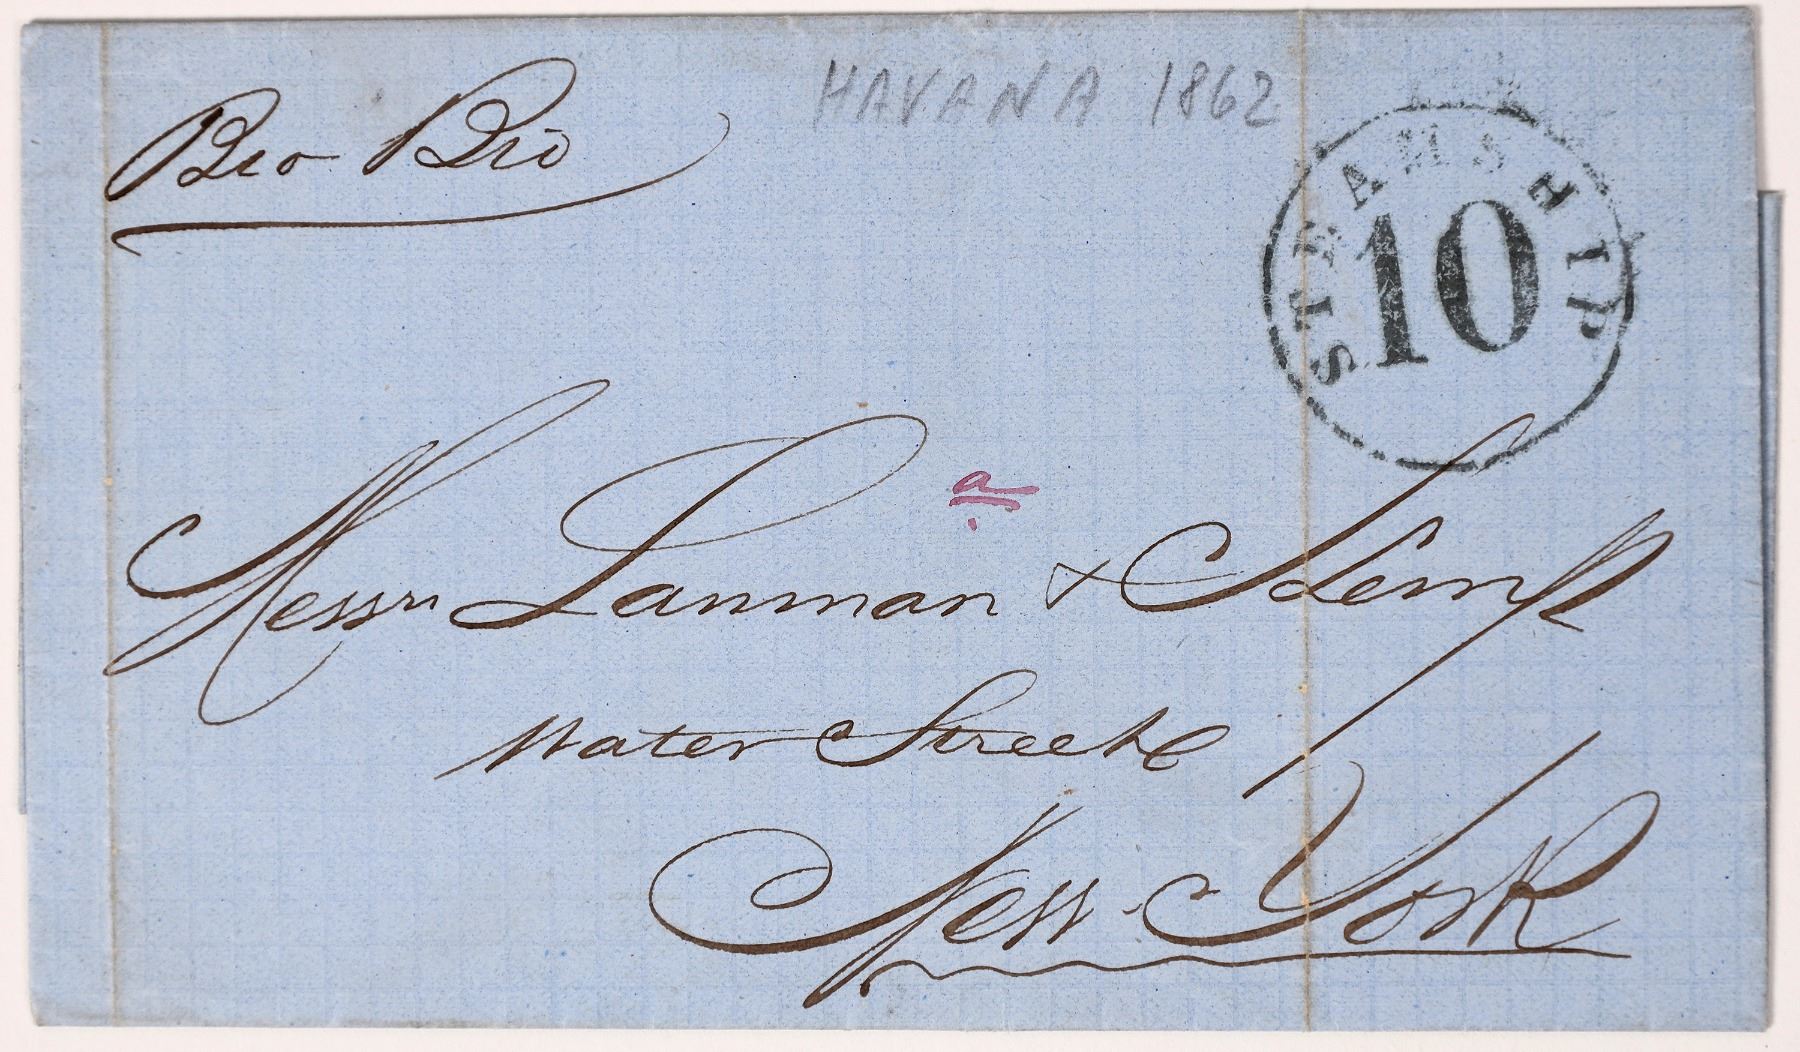 HAVANA 1862
Bio Bio
STEAMSHIP
10
a
Messrs Lanman & Kemp
Water Street
New York